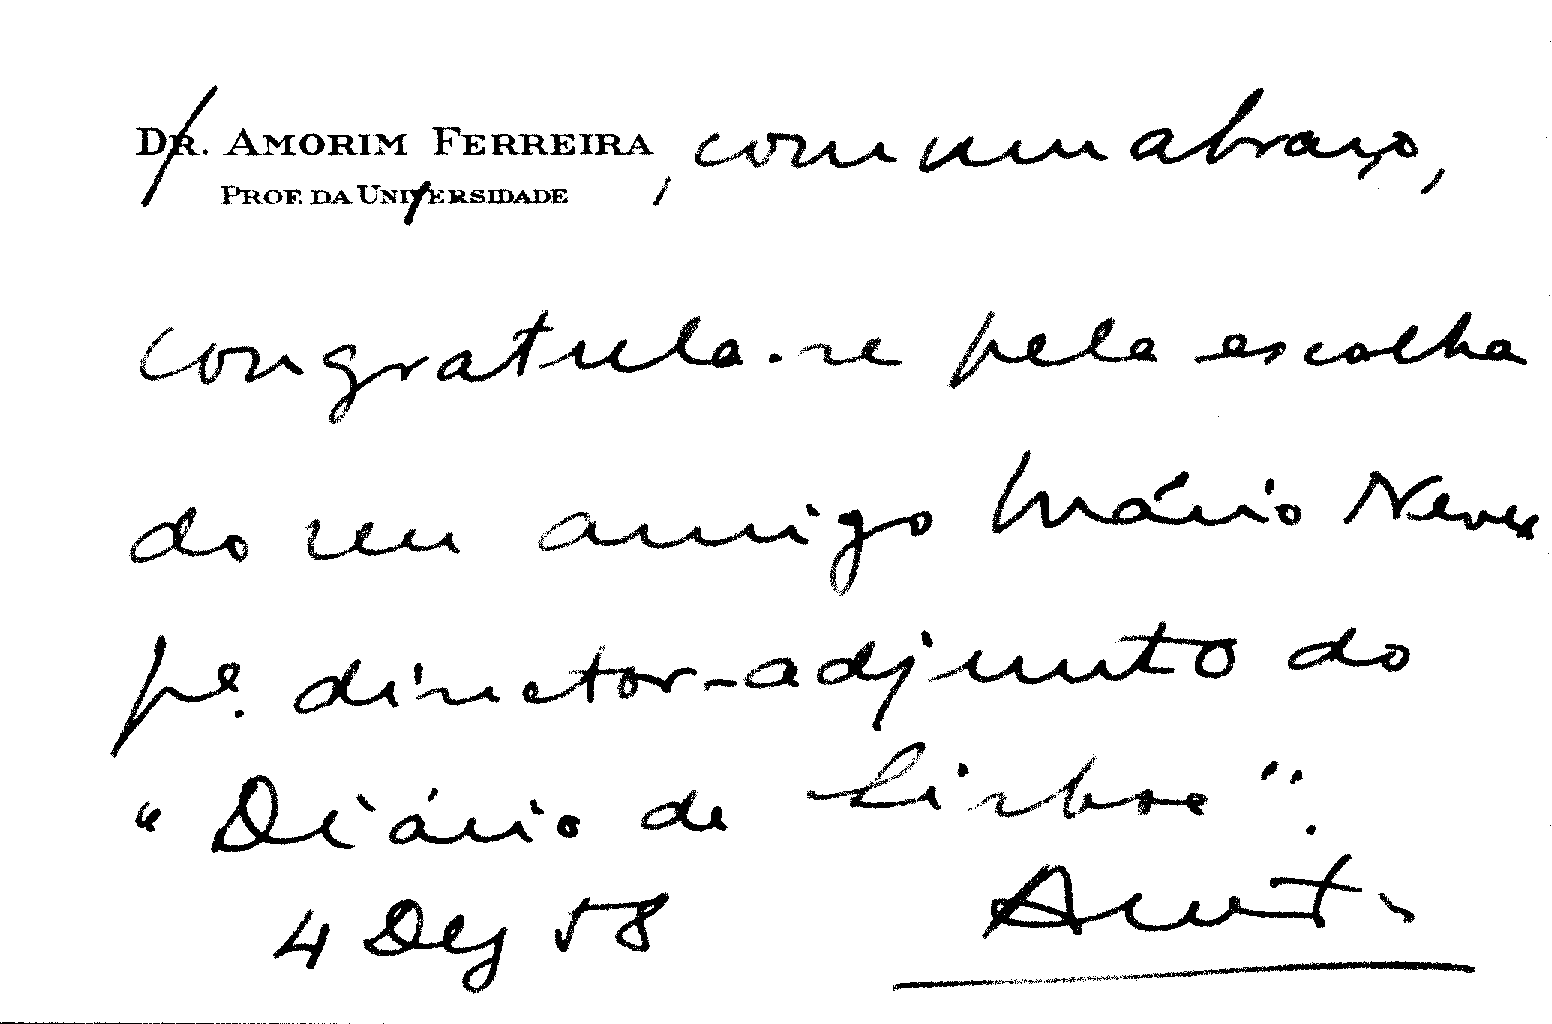 DR. AMORIM FERREIRA, com um abraço,
PROF. DA UNIVERSIDADE
congratula-se pela escolha
do seu amigo Mário Neves
pª. director-adjunto do
"Diário de Lisboa".
4 Dez 58